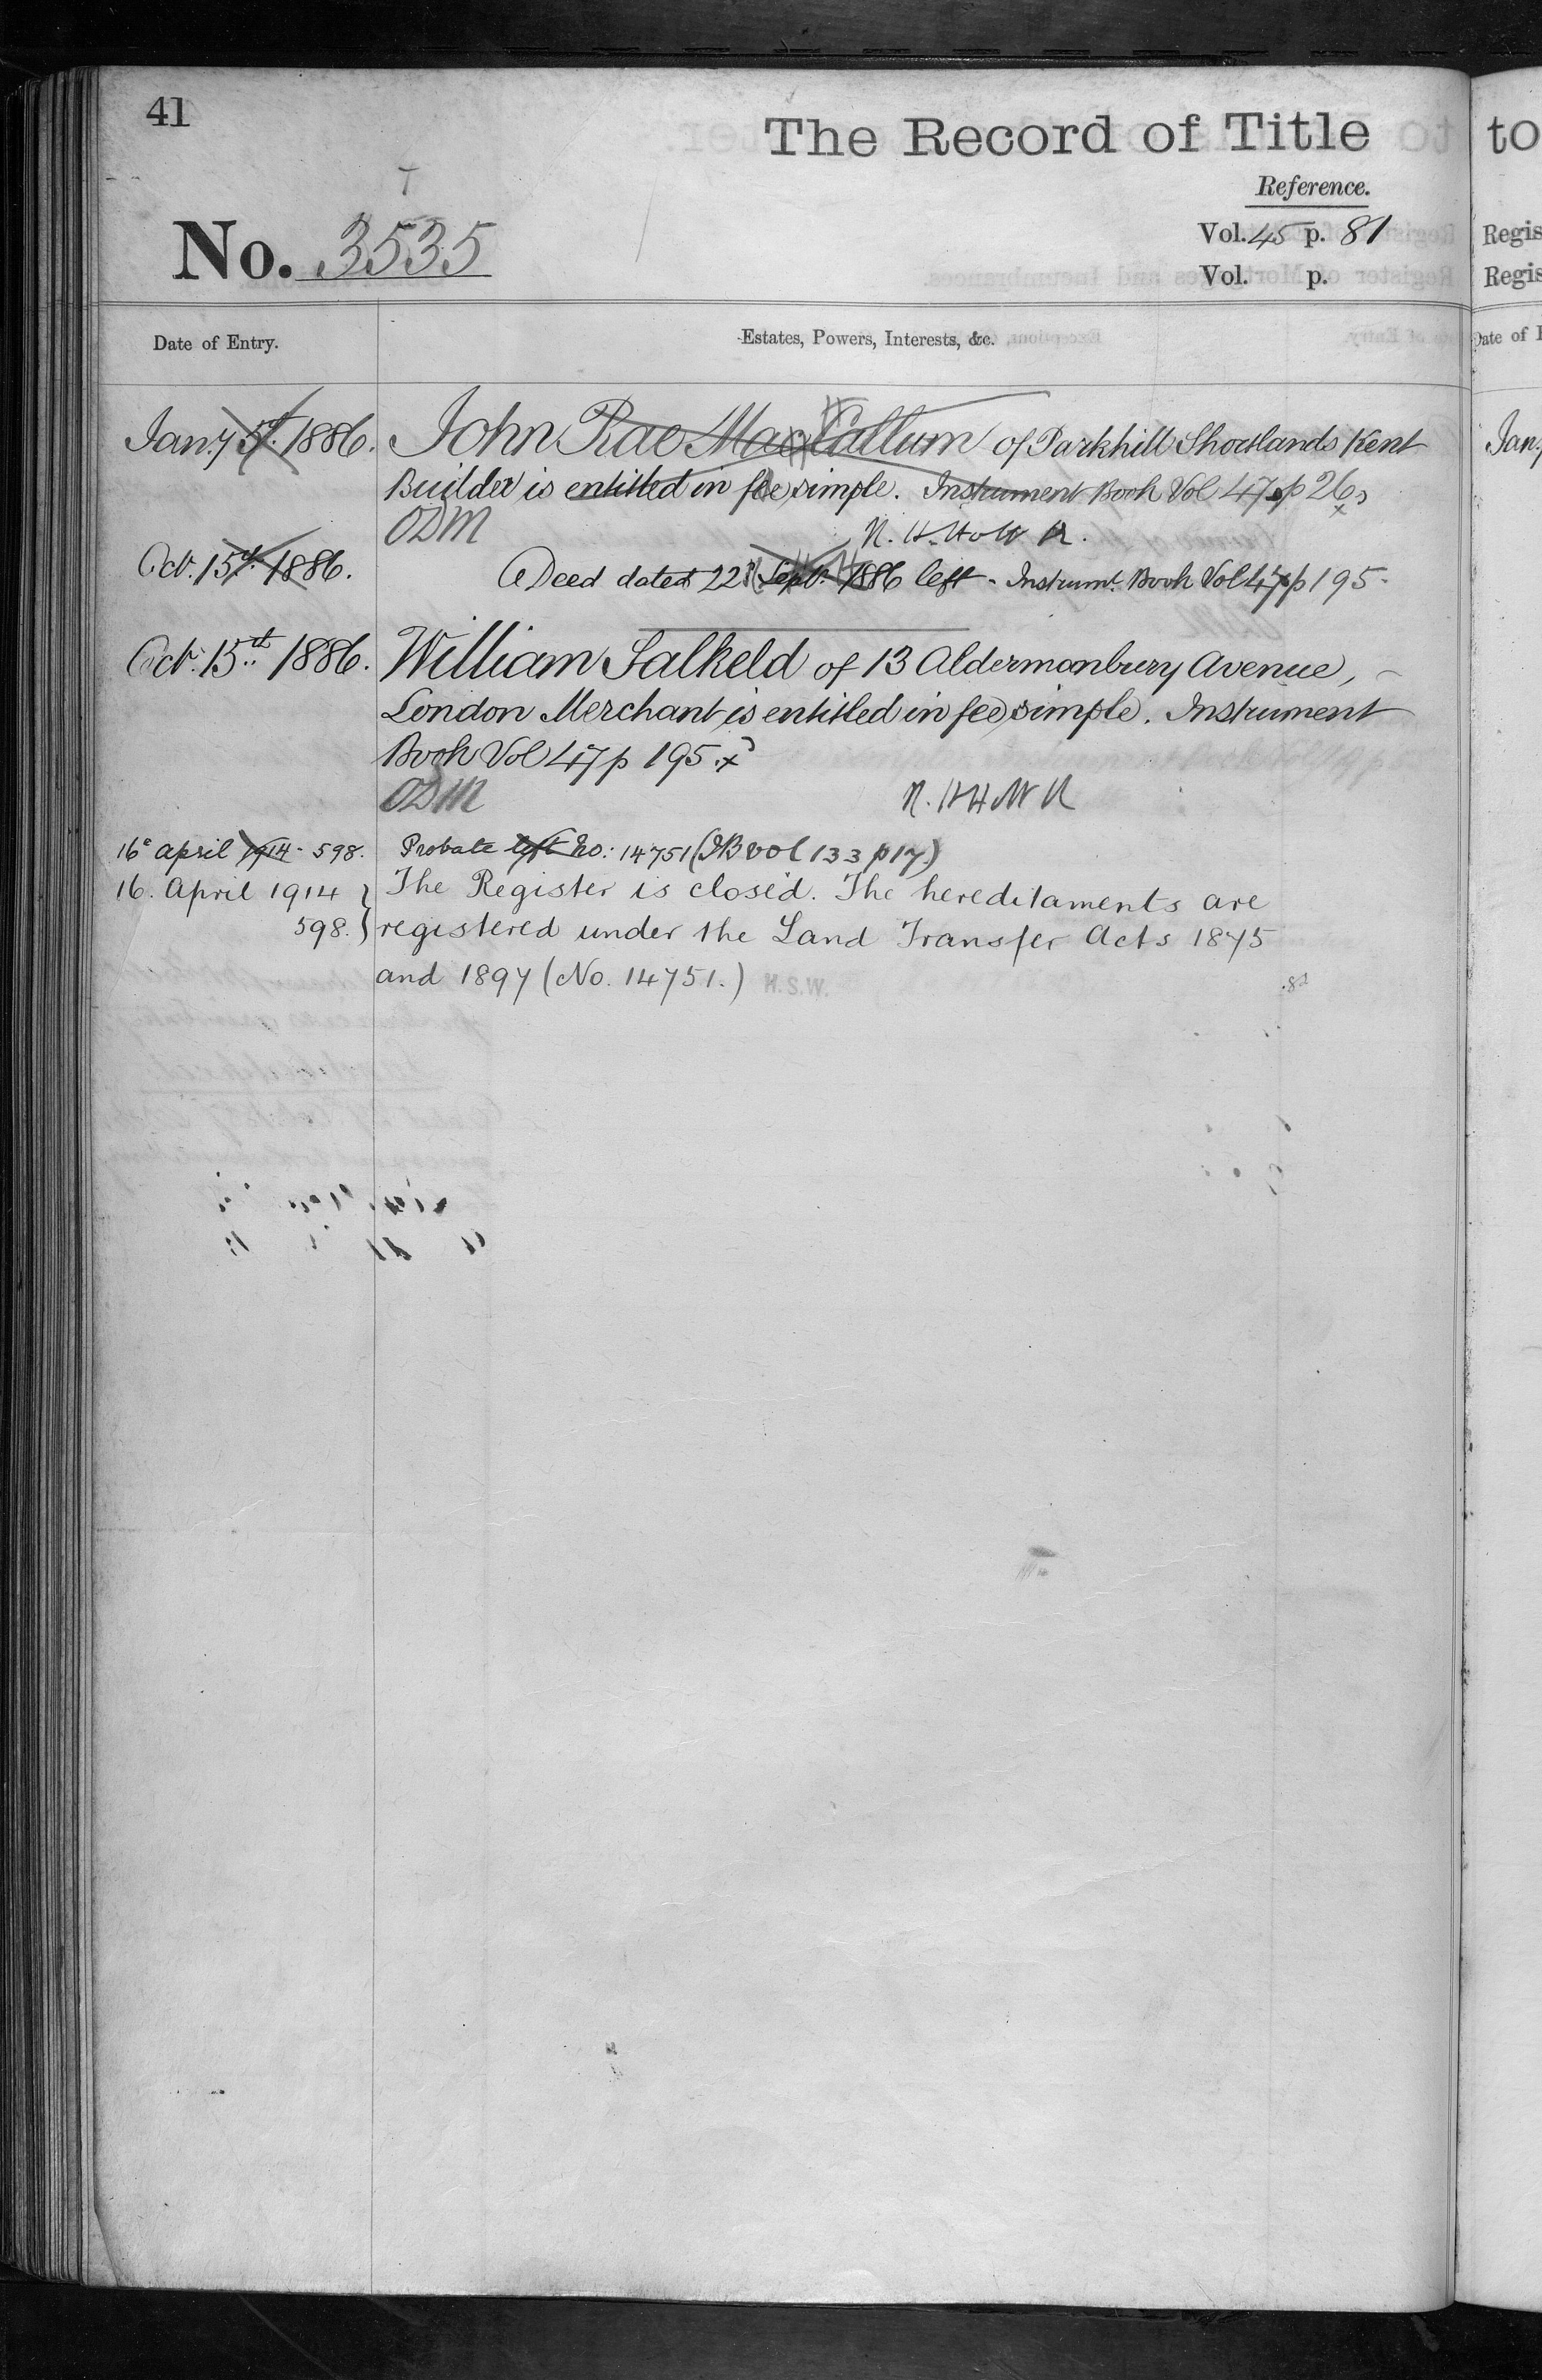 41
The Record of Title
to
Reference.
T
No. 3535
Vol. 45 p. 81
Regis
Vol. p.
Regis
Date of Entry.
Estates, Powers, Interests, &c.
Date of E
Jany 5th 1886.
John Rae MacCallum of Parkhill Shortlands Kent
Jan
Builder is entitled in fee simple. Instrument Book Vol 47 p 26
ODM
Oct. 15th 1886.
Deed dated 22d Septr. 1886 left - Instrumt. Book Vol 47 p 195
Oct. 15th 1886.
William Salkeld of 13 Aldermanbury Avenue,
London Merchant is entitled in fee simple. Instrument
Book Vol 47 p 195 x
ODM
16 April 1914 - 598.
Probate left No: 14751 (IB vol 133 p 17.)
16. April 1914
598.
The Register is closed. The hereditaments are
registered under the Land Transfer Acts 1875
and 1897 (No. 14751.) H.S.W.